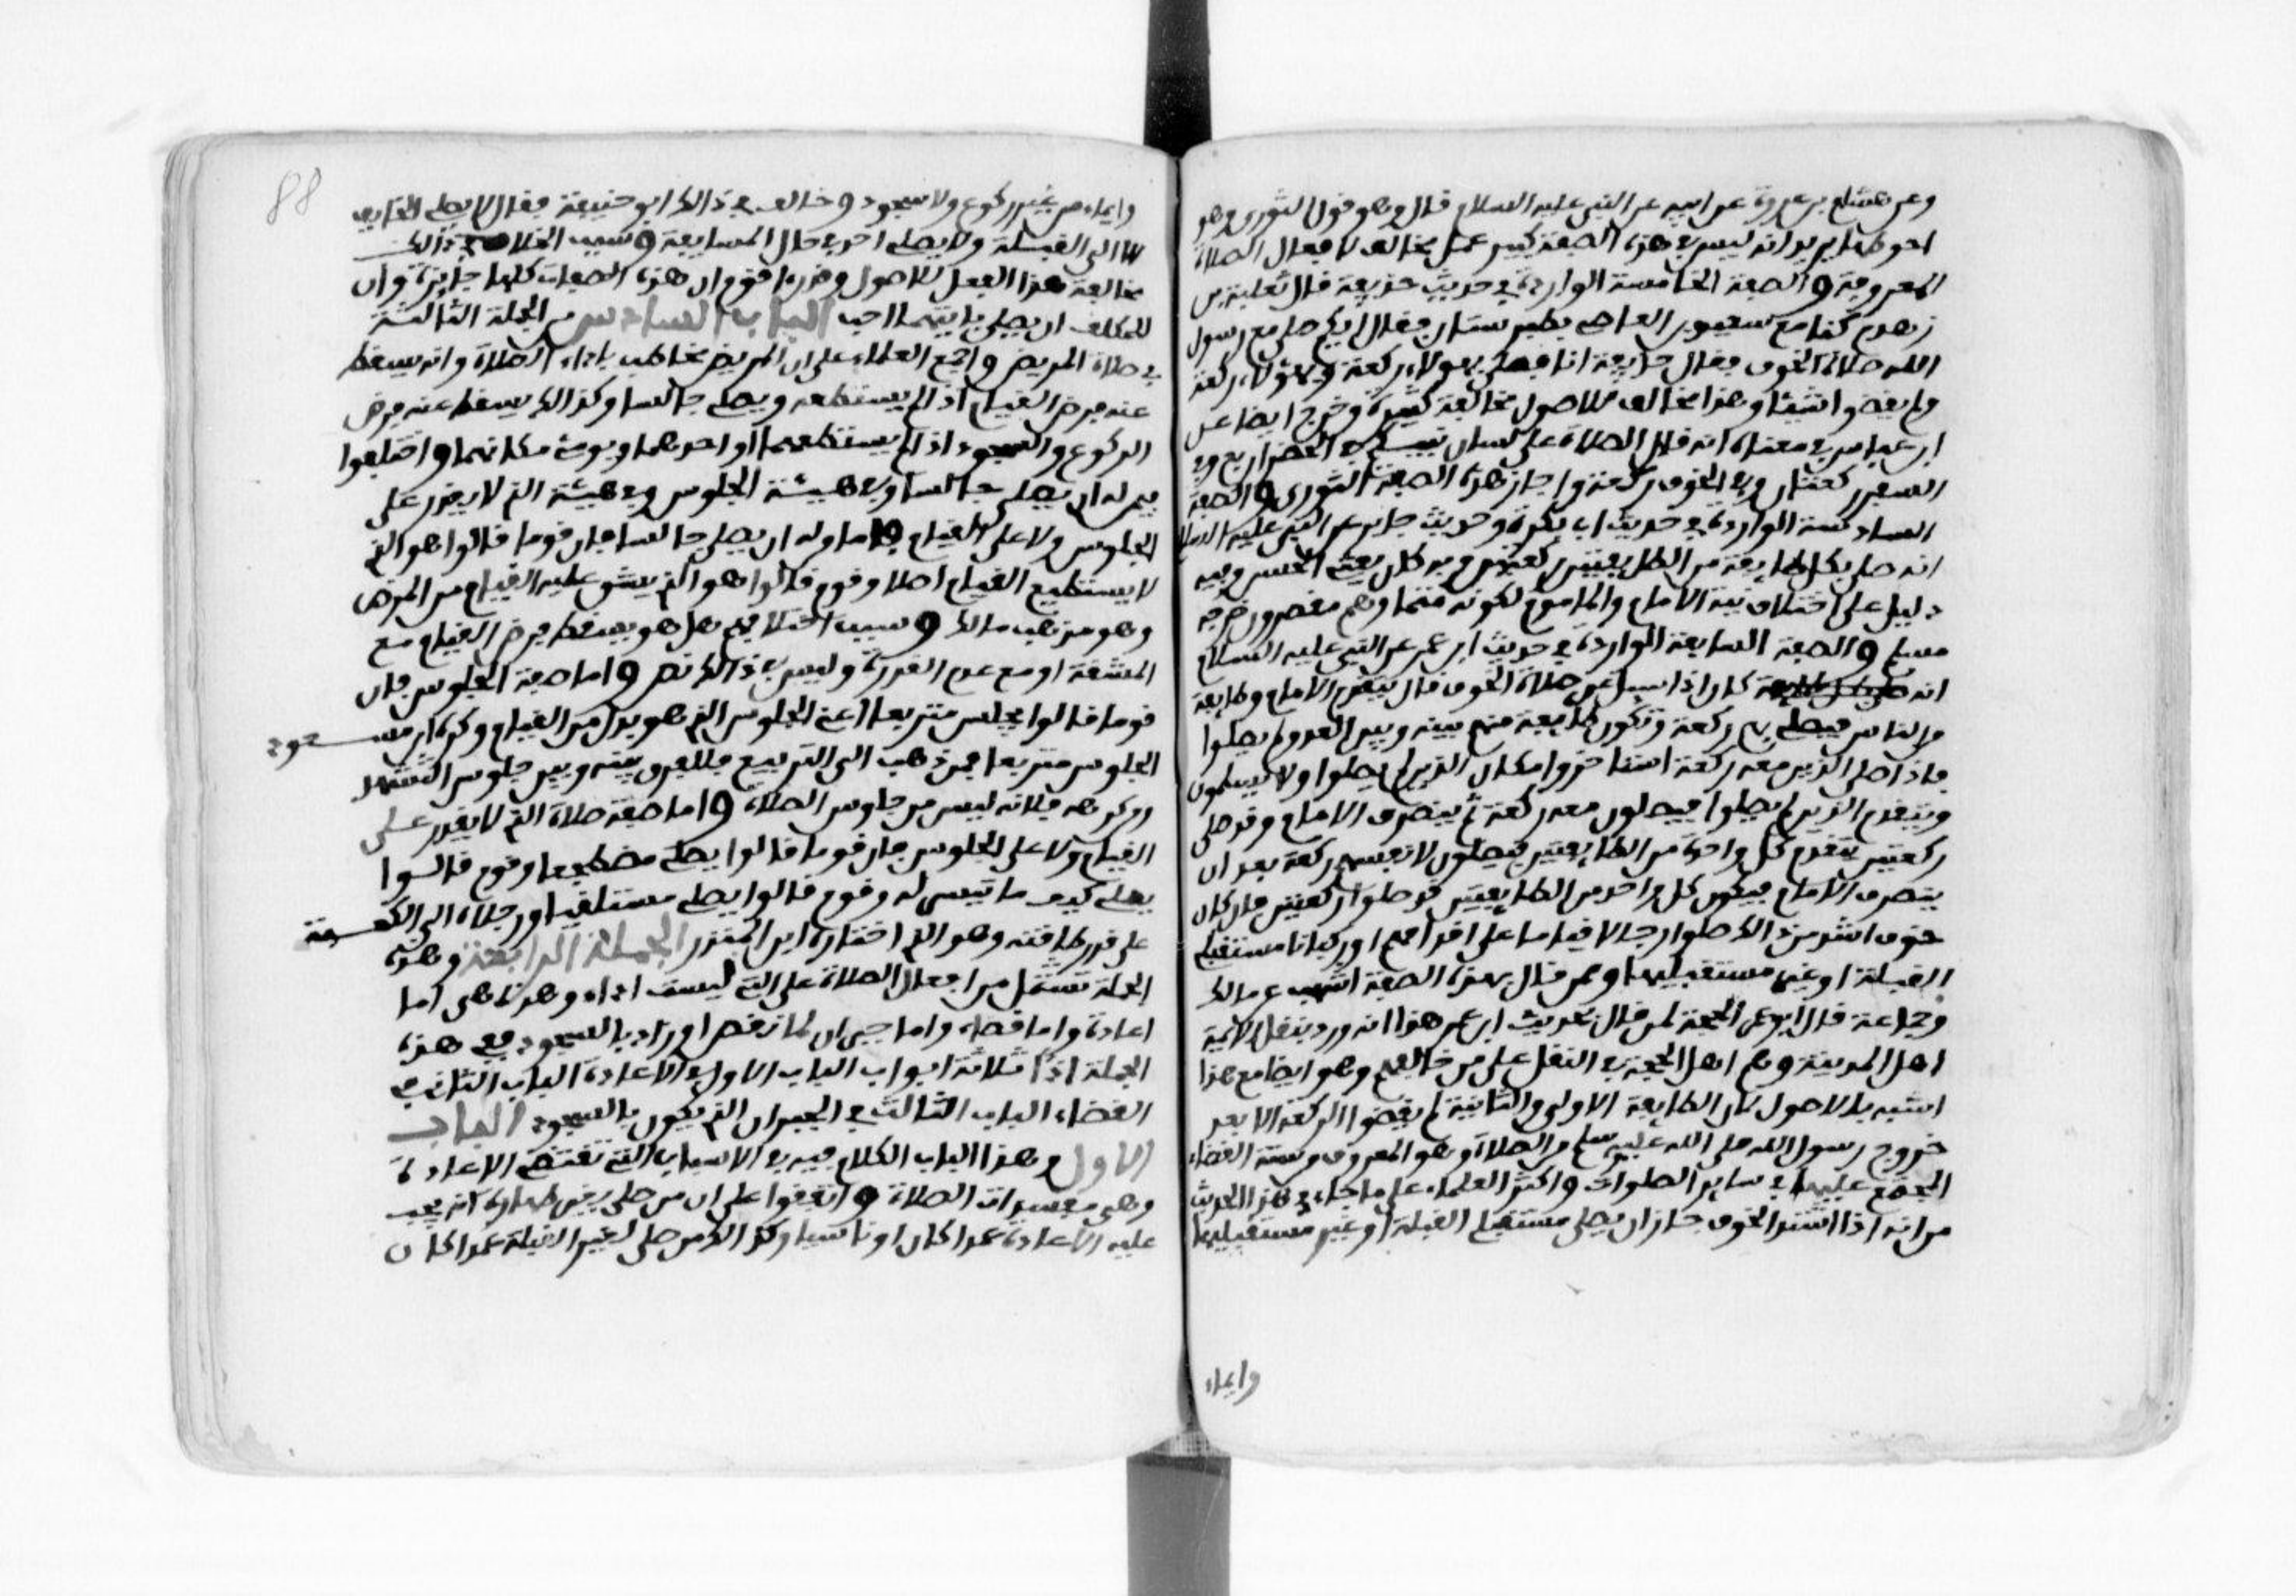 وعن هشام بن عروة عن ابيه عن النبي عليه السلام قال وهو قول الثوري وهو
احوطها يريد انه ليس في هذه الصفة كبير عمل مخالف لافعال الصلاة
المعروفة والصفة الخامسة الواردة في حديث حذيفة قال ثعلبة بن
زهدم كنا مع سعيد بن العاصي بطبرستان فقال ايكم صلى مع رسول
الله صلاة الخوف فقال حذيفة انا فصلى بهولاء ركعة وبهولاء ركعة
ولم يقضوا شيئا وهذا مخالف للاصول مخالفة كثيرة وخرج ايضا عن
ابن عباس في معناه انه قال الصلاة على لسان نبيكم في الحضر اربع وفي
السفر ركعتان وفي الخوف ركعة واجاز هذه الصفة الثوري والصفة
السادسة الواردة في حديث ابي بكرة وحديث جابر عن النبي عليه السلام
انه صلى بكل طايفة من الطايفتين ركعتين وبه كان يفتي الحسن وفيه
دليل على اختلاف نية الامام والماموم لكونه متما وهم مقصرون خرجه
مسلم والصفة السابعة الواردة في حديث ابن عمر عن النبي عليه السلام
انه كان اذا سيل عن صلاة الخوف قال يتقدم الامام وطايفة
من الناس فيصلي بهم ركعة وتكون طايفة منهم بينه وبين العدو لم يصلوا
فاذا صلى الذين معه ركعة استاخروا مكان الذين لم يصلوا ولا يسلمون
ويتقدم الذين لم يصلوا فيصلون معه ركعة ثم ينصرف الامام وقد صلى
ركعتين يتقدم كل واحدة من الطايفتين فيصلون لانفسهم ركعة بعد ان
ينصرف الامام فيكون كل واحد من الطايفتين قد صلوا ركعتين فان كان
خوف اشد من ذالك صلوا رجالا قياما على اقدامهم او ركبانا مستقبلي
القبلة او غير مستقبليها وممن قال بهذه الصفة اشهب عن مالك
وجماعة قال ابو عمر الحجة لمن قال بحديث ابن عمر هذا انه ورد بنقل الايمة
اهل المدينة وهم اهل الحجة في النقل على من خالفهم وهو ايضا مع هذا
اشبه بالاصول لان الطايفة الاولى والثانية لم يقضوا الركعة الا بعد
خروج رسول الله صلى الله عليه سلم من الصلاة وهو المعروف من سنة القضاء
المجتمع عليها في ساير الصلوات واكثر العلماء على ما جاء في هذا الحديث
من انه اذا اشتد الخوف جاز ان يصلي مستقبل القبلة او غير مستقبليها
وايماء
88
وايماء من غير ركوع ولا سجود وخالف في ذالك ابو حنيفة فقال لا يصلي الخايف
الا الى القبلة ولا يصلي احد في حال المسايفة وسبب الخلاف في ذالك
مخالفة هذا الفعل للاصول وقد راى قوم ان هذه الصفات كلها جايزة وان
للمكلف ان يصلي بايتهما احب الباب السادس من الجملة الثالثة
في صلاة المريض واجمع العلماء على ان المريض مخاطب باداء الصلاة وانه يسقط
عنه فرض القيام اذا لم يستطعه ويصلي جالسا وكذالك يسقط عنه فرض
الركوع والسجود اذا لم يستطعهما او احدهما ويومئ مكانهما واختلفوا
فيمن له ان يصلي جالسا وفي هيئة الجلوس وفي هيئة الذي لا يقدر على
الجلوس ولا على القيام فاما من له ان يصلي جالسا فان قوما قالوا هو الذي
لا يستطيع القيام اصلا وقوم قالوا هو الذي يشق عليه القيام من المرض
وهو مذهب مالك وسبب اختلافهم هل هو يسقط فرض القيام مع
المشقة او مع عدم القدرة وليس في ذالك نص واما صفة الجلوس فان
قوما قالوا يجلس متربعا اعني الجلوس الذي هو بدل من القيام وكره ابن مسعود
الجلوس متربعا فمن ذهب الى التربيع فللفرق بينه وبين جلوس التشهد
ومن كرهه فلانه ليس من جلوس الصلاة واما صفة صلاة الذي لا يقدر على
القيام ولا على الجلوس فان قوما قالوا يصلي مضطجعا وقوم قالوا
يصلي كيف ما تيسر له وقوم قالوا يصلي مستلقيا ورجلاه الى الكعبة
على قدر طاقته وهو الذي اختاره ابن المنذر الجملة الرابعة وهذه
الجملة تشتمل من افعال الصلاة على التي ليست اداء وهذه هي اما
اعادة واما قضاء واما جبران لما نقص او زاد بالسجود ففي هذه
الجملة اذا ثلاثة ابواب الباب الاول في الاعادة الباب الثاني في
القضاء الباب الثالث في الجبران الذي يكون بالسجود الباب
الاول وهذا الباب الكلام فيه في الاسباب التي تقتضي الاعادة
وهي مفسدات الصلاة واتفقوا على ان من صلى بغير طهارة انه يجب
عليه الاعادة عمدا كان او ناسيا وكذالك من صلى لغير القبلة عمدا كان